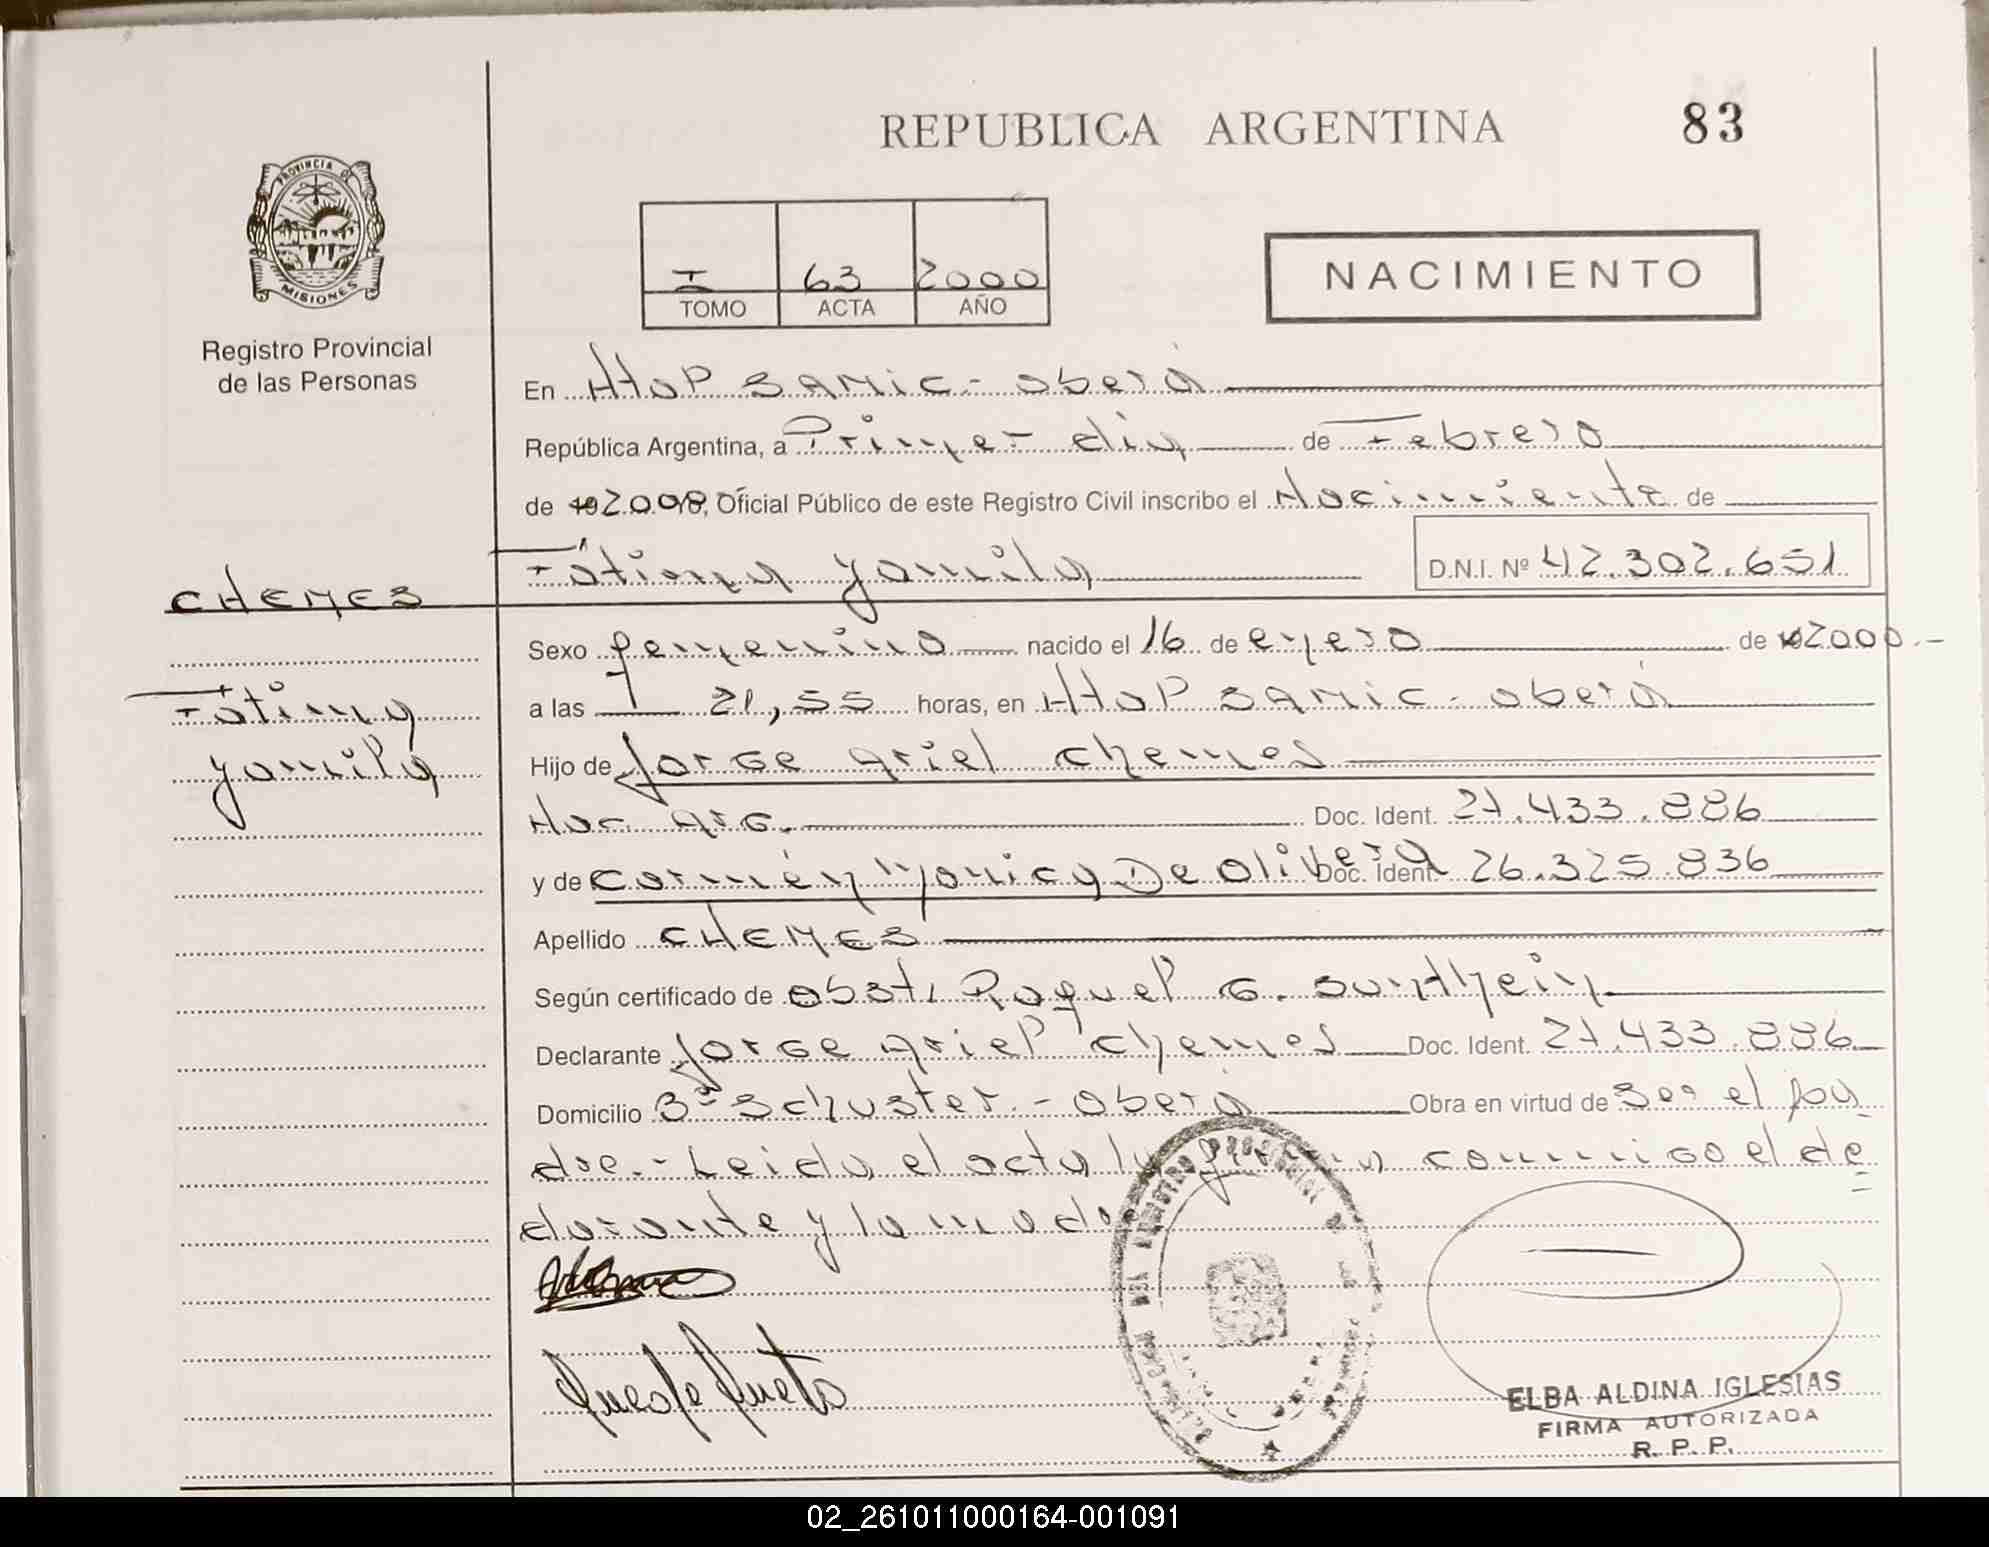 REPUBLICA ARGENTINA
83
PROVINCIA DE
MISIONES
Registro Provincial
de las Personas
I 63 2000
TOMO ACTA AÑO
NACIMIENTO
En Hosp SAMIC - oberá
República Argentina, a Primer día de Febrero
de 19 2.000, Oficial Público de este Registro Civil inscribo el Nacimiento de
Fátima yamila D.N.I. Nº 42.302.651
CHEMES
Fátima
yamila
Sexo femenino nacido el 16 de enero de 19 2000.-
a las 21,55 horas, en Hosp SAMIC - oberá
Hijo de Jorge ariel chemes
Nac. arg. Doc. Ident. 27.433.886
y de carmén Monica De olivera Doc. Ident. 26.325.836
Apellido CHEMES
Según certificado de obst. Raquel G. sunthein
Declarante Jorge ariel chemes Doc. Ident. 27.433.886
Domicilio Bº schuster.- oberá Obra en virtud de ser el pa
dre.- Leida el acta la firman conmigo el de
clarante y la madre
ELBA ALDINA IGLESIAS
FIRMA AUTORIZADA
R. P. P.
02_261011000164-001091